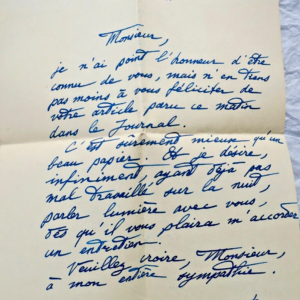 Monsieur,
je n'ai point l'honneur d'être
connu de vous, mais n'en tiens
pas moins à vous féliciter de
votre article, paru ce matin
dans le Journal.
C'est sûrement mieux qu'un
beau papier. Et je désire,
infiniment, ayant déjà pas
mal travaillé sur la nuit,
parler lumière avec vous,
dès qu'il vous plaira m'accorder
un entretien.
Veuillez croire, Monsieur,
à mon entière sympathie.